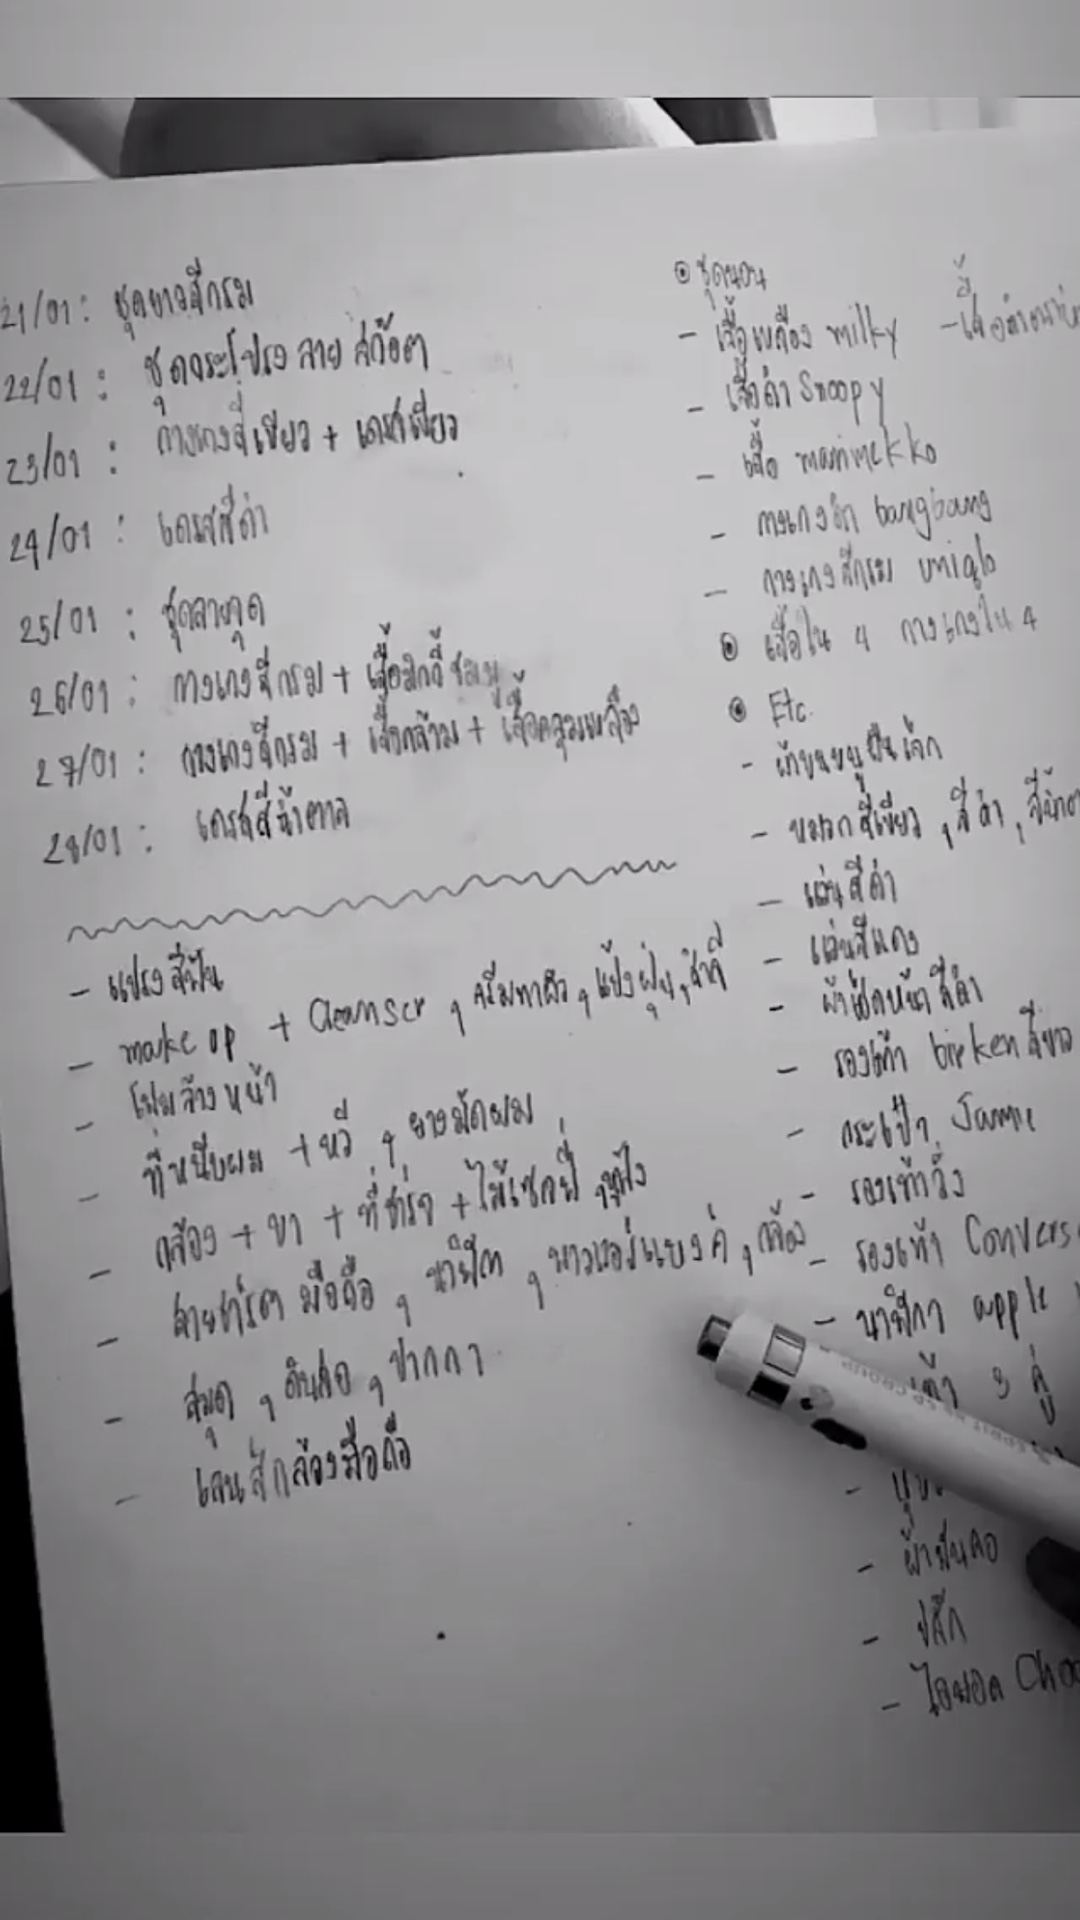 21/01 : ชุดยาวสีกรม
22/01 : ชุดกระโปรง ลาย สก๊อต
23/01 : กางเกงสีเขียว + เดรสเขียว
24/01 : เดรสสีดำ
25/01 : ชุดลายจุด
26/01 : กางเกงสีกรม + เสื้อมิกกี้
27/01 : กางเกงสีกรม + เสื้อกล้าม + เสื้อคลุมเหลือง
28/01 : เดรสสีน้ำตาล
- แปรงสีฟัน
- make up + Cleanser , ครีมทาผิว , แป้งฝุ่น , สำลี
- โฟมล้างหน้า
- ที่หนีบผม + หวี , ยางมัดผม
- กล้อง + ขา + ที่ชาร์จ + ไม้เซลฟี่ , หูฟัง
- สายชาร์ต มือถือ , นาฬิกา , พาวเวอร์แบงค์ , กล้อง
- สมุด , ดินสอ , ปากกา
- เลนส์กล้องมือถือ
ชุดนอน
- เสื้อเหลือง milky
- เสื้อดำ Snoopy
- เสื้อ marimekko
- กางเกง bangbang
- กางเกงสีกรม uniqlo
เสื้อใน 4 กางเกงใน 4
Etc.
- ผ้าขนหนูผืนเล็ก
- หมวกสีเขียว , สีดำ ,
- แว่นสีดำ
- แว่นสีแดง
- ผ้าเช็ดหน้าสีดำ
- รองเท้า birken สีขาว
- กระเป๋า Jamie
- รองเท้าวิ่ง
- รองเท้า
- นาฬิกา apple
3 คู่
- ผ้าพันคอ
- ปลั๊ก
- ไอพอด